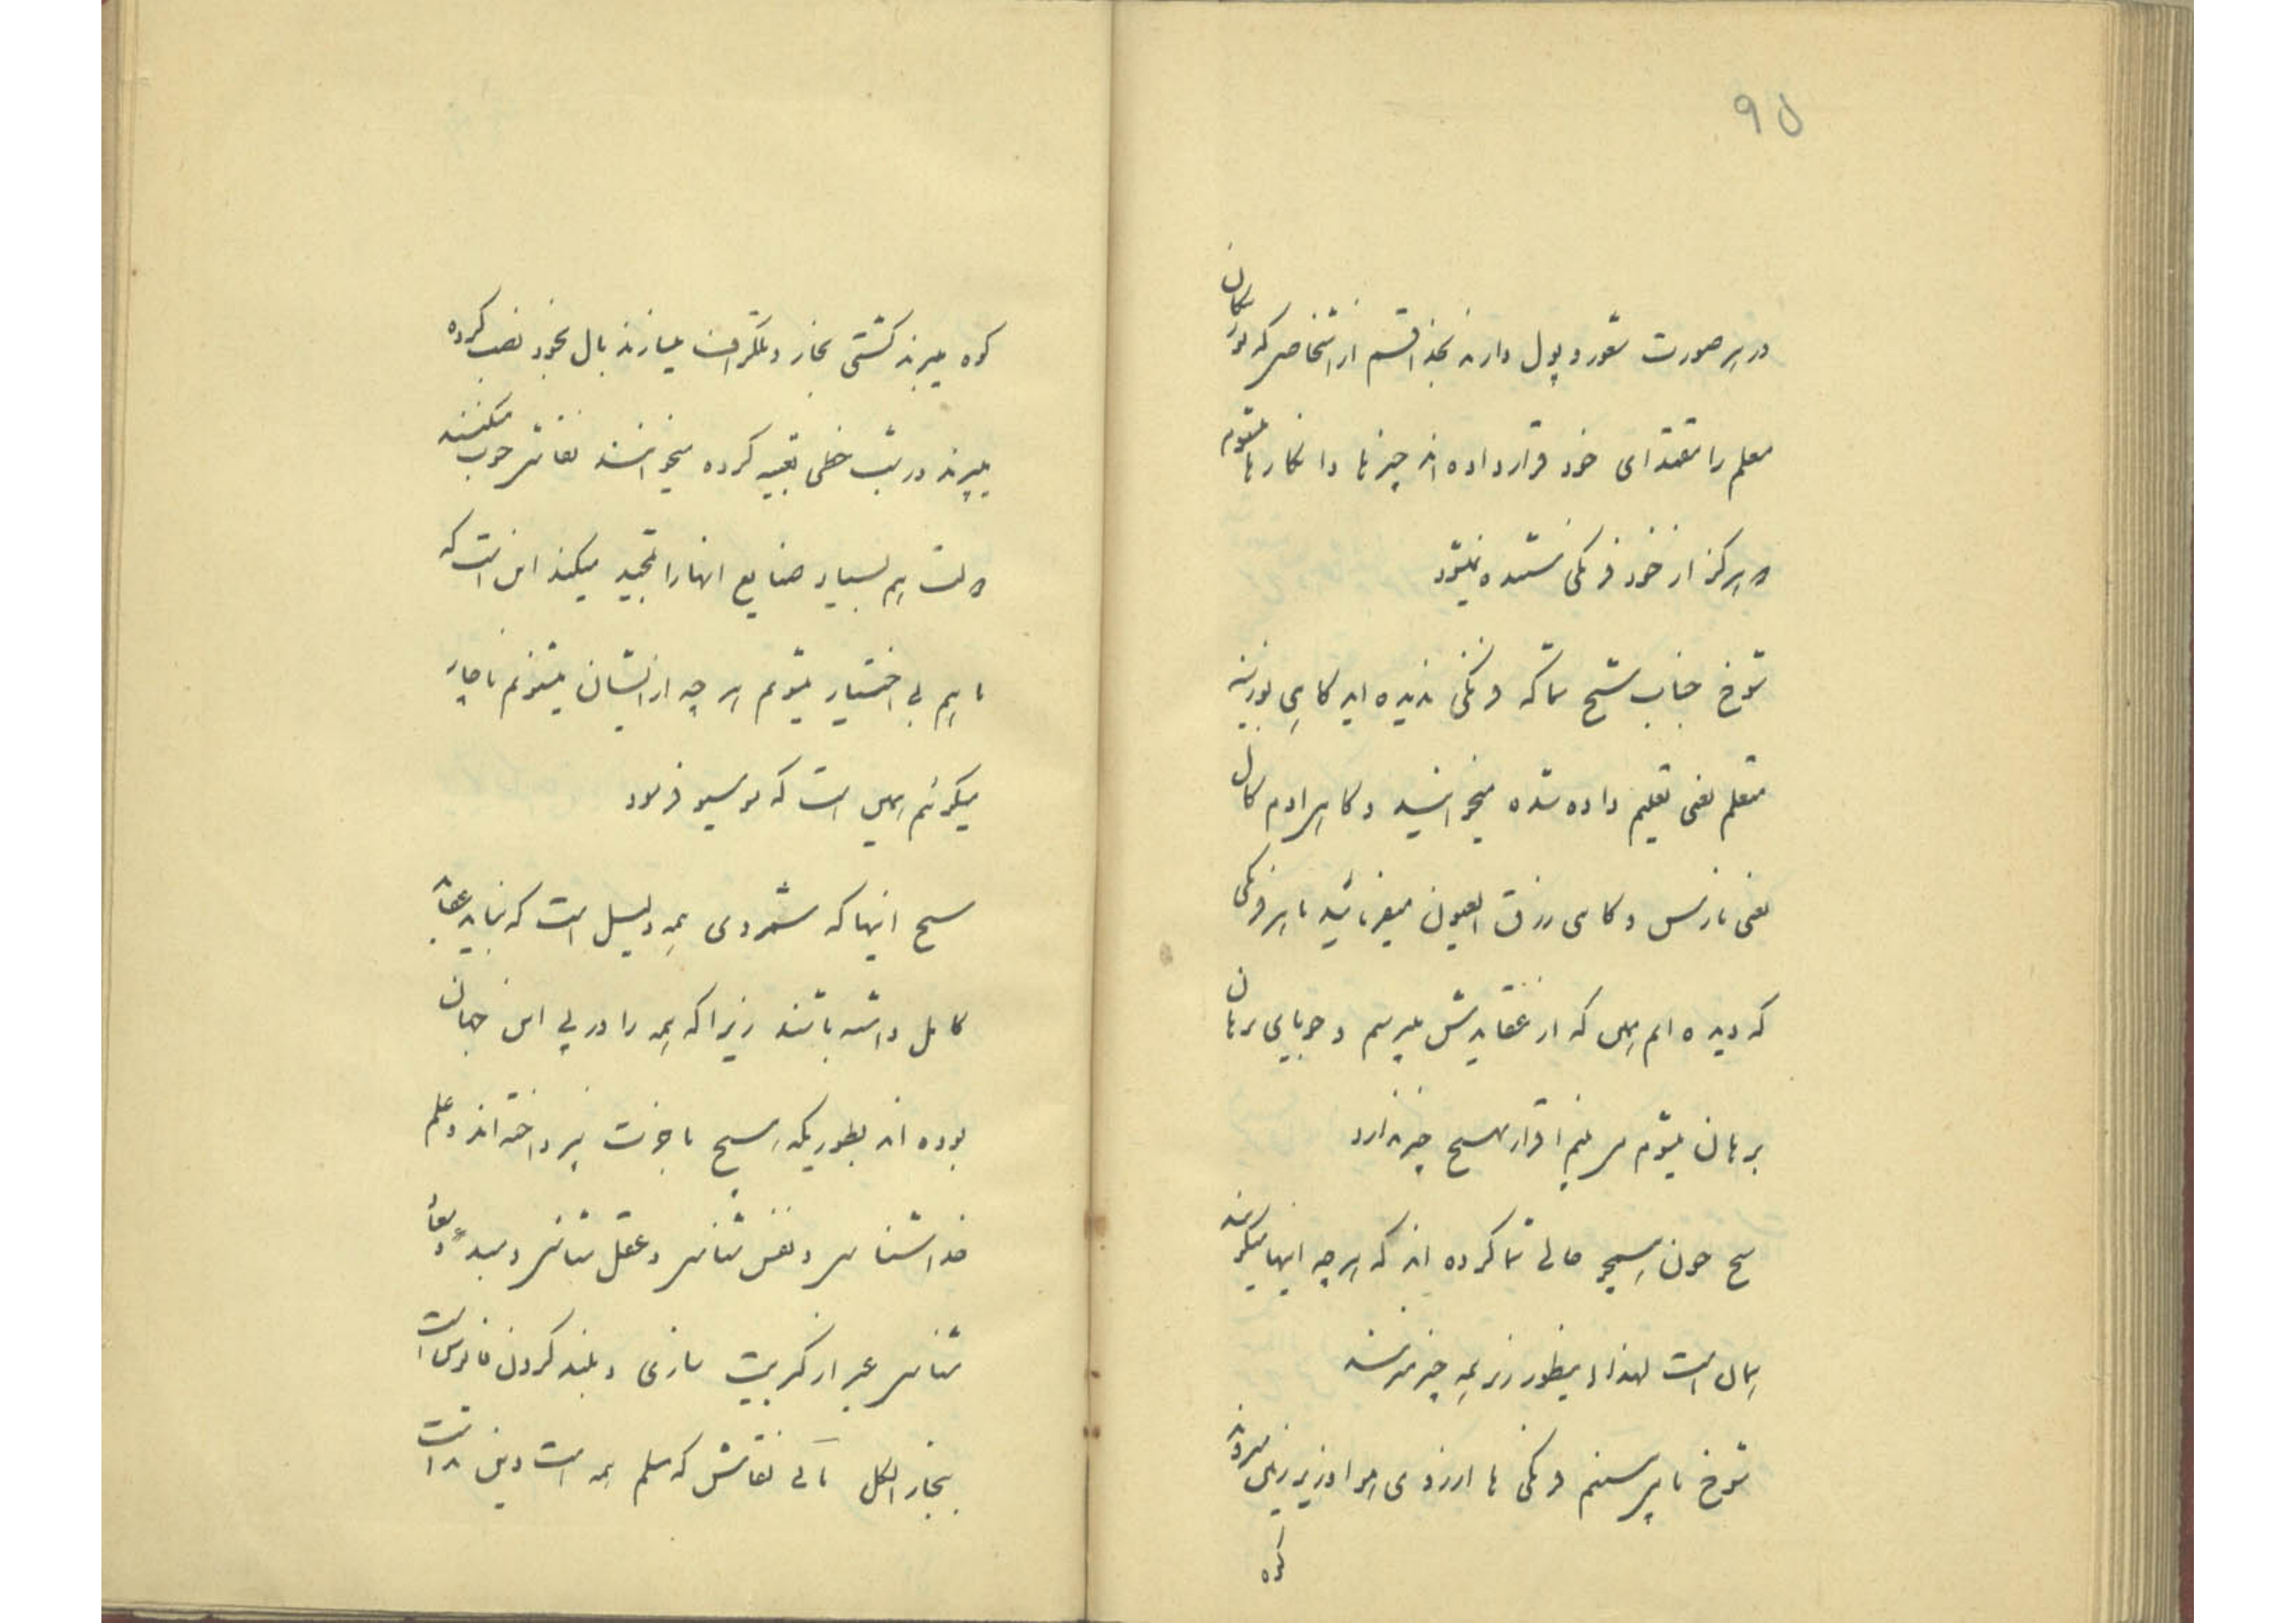 ۹۵
در هر صورت شعور و پول دارند بخذا قسم از اشخاصی که بوزینکان
معلم را مقتدای خود قرار داده اند چیزها و انکارها میشود
و هرکز از خود فرنکی شنیده نمیشود
شوخ جناب شیخ شما که فرنکی ندیده اید کاهی بوزینه
متعلم یعنی تعلیم داده شده میخوانید و کاهی آدم کامل
یعنی نارنس و کاهی زرق العیون میفرمائید ما هر فرنکی
که دیده ایم همین که از عقایدش میپرسم و جویای برهان
برهان میشوم می بینم اقرار بهیچ چیز ندارد
شیخ چون هیچ حالی شما کرده اند که هر چه اینها میکویند
همان است لهذا اینطور زیر همه چیز میزنند
شوخ ما میپرسیم فرنکی ها از روی هوا و زیر زمین میروند
کوه
کوه میبرند کشتی بخار و تلکراف میسازند بال بخود نصب کرده
میپرند در شب خطی تعبیه کرده میخوانند نقاشی خوب میکنند
ولت هم بسیار صنایع آنها را تمجید میکند این است که
ما هم بی اختیار میشویم هر چه از ایشان میشنویم ناچار
میکوئیم همین است که موسیو فرمود
شیخ اینها که شمردی همه دلیل است که نباید عقاید
کامل داشته باشند زیرا که همه را در پی این جهان
بوده اند بطوریکه هیچ باخرت نپرداخته اند و علم
خدا شناسی و نفس شناسی و عقل شناسی و مبدء و معاد
شناسی غیر از کبریت سازی و بلند کردن فانوس است
بخار الکل مانی نقاش که مسلم همه است و پیغمبر است